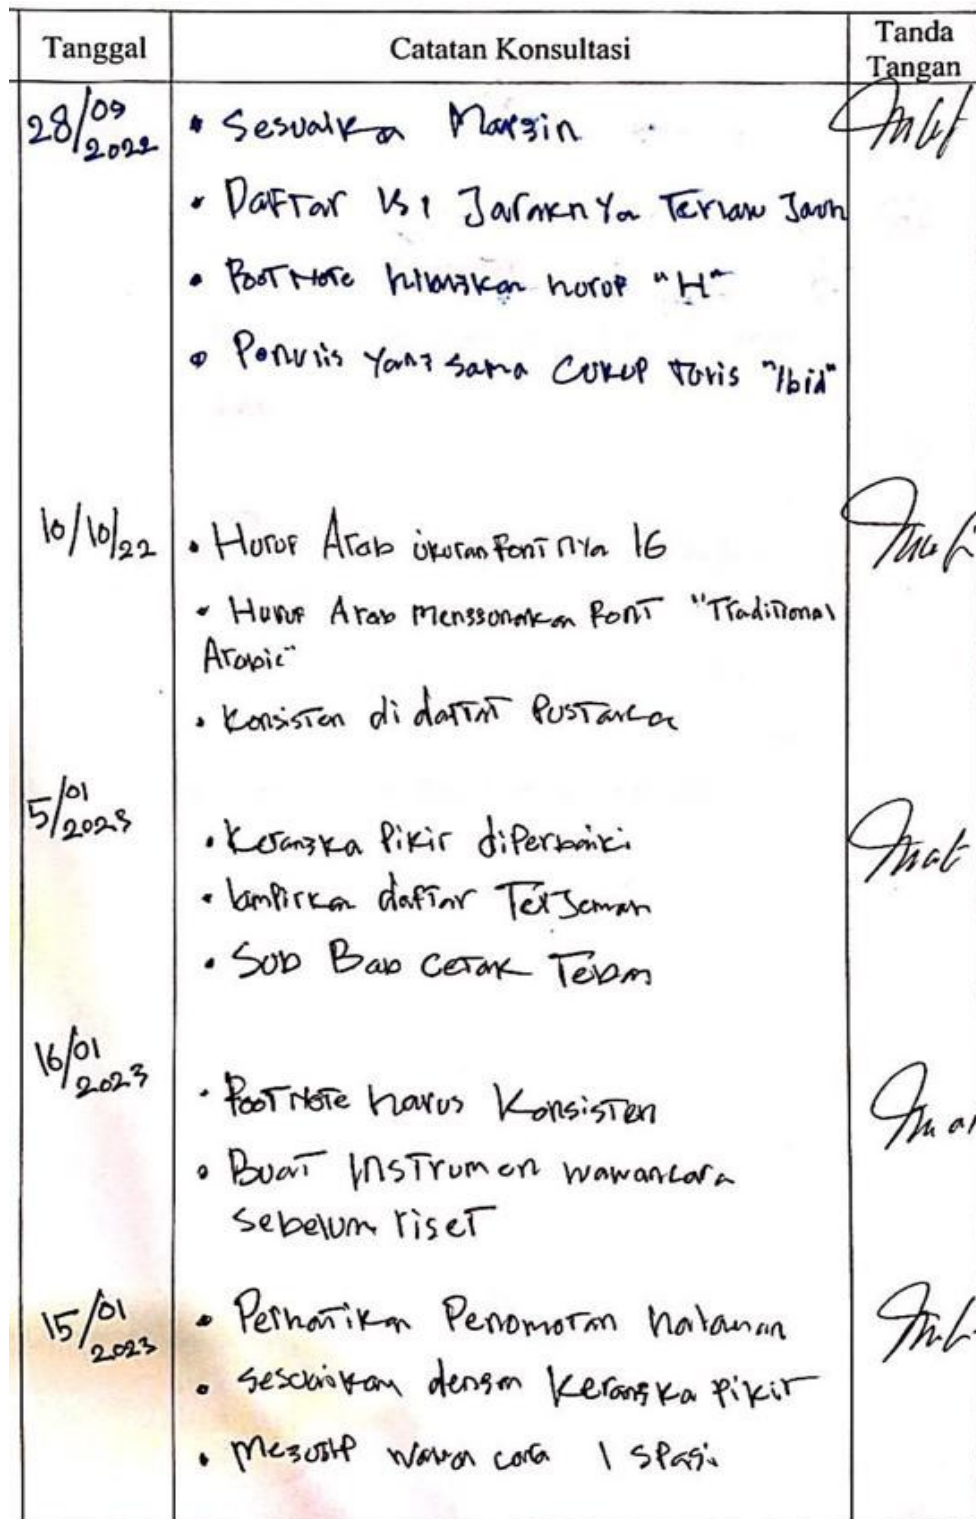 Tanggal
Catatan Konsultasi
Tanda
Tangan
28/09
2022
• Sesuaikan Margin
• Daftar Isi Jaraknya Terlalu Jauh
• Foot Note hilangkan huruf "H"
• Penulis yang sama cukup Tulis "Ibid"
10/10/22
• Huruf Arab ukuran Font nya 16
• Huruf Arab Menggunakan Font "Traditional
Arabic"
• Konsisten di daftar Pustaka
5/01
2023
• Kerangka Pikir diperbaiki
• lampirkan daftar Terjemah
• Sub Bab Cetak Tebal
16/01
2023
• Foot Note harus Konsisten
• Buat Instrumen wawancara
sebelum riset
15/01
2023
• Perhatikan Penomoran halaman
• sesuaikan dengan Kerangka Pikir
• wawancara 1 spasi